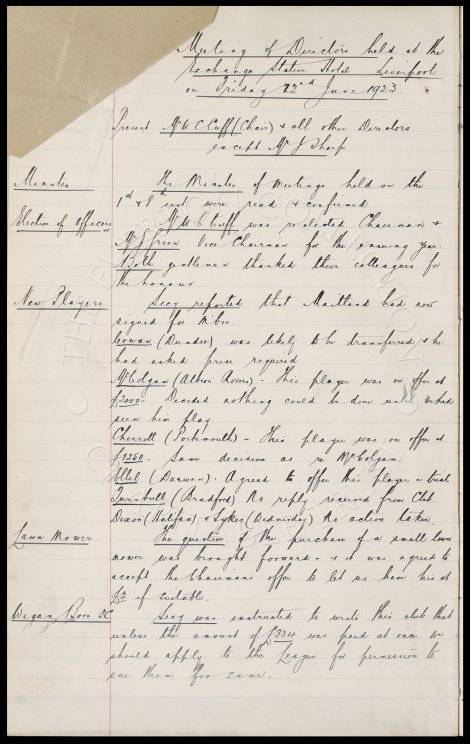 Meeting of Directors held at the
Exchange Station Hotel Liverpool
on Friday 22nd June 1923
Present Mr W C Cuff (Chair) & all other Directors
except Mr J Sharp.
Minutes
The Minutes of meetings held on the
1st & 8 inst were read & confirmed
Election of Officers
Mr W C Cuff was reelected Chairman &
Mr Green Vice Chairman for the ensuing year.
Both gentlemen thanked their colleagues for
the honour
New Players
Secy reported that Maitland had now
signed for Mbro.
Cowan (Dundee) was likely to be transferred & he
had asked price required
McColgan (Albion Rovers). This player was on offer at
£2000. Decided nothing could be done until we had
seen him play
Cherrett (Portsmouth) - This player was on offer at
£1250. Same decision as re McColgan
Ellel (Darwen). Agreed to offer this player a trial
Turnbull (Bradford) No reply received from Club.
Dixon (Halifax) & Sykes (Wednesday) No action taken
Lawn Mower
The question of the purchase of a small lawn
mower was brought forward - & it was agreed to
accept the Chairman's offer to let us have his at
£2 if suitable.
Wigan Boro FC
Secy was instructed to write this club that
unless the amount of £334 was paid at once we
should apply to the League for permission to
sue them for same.